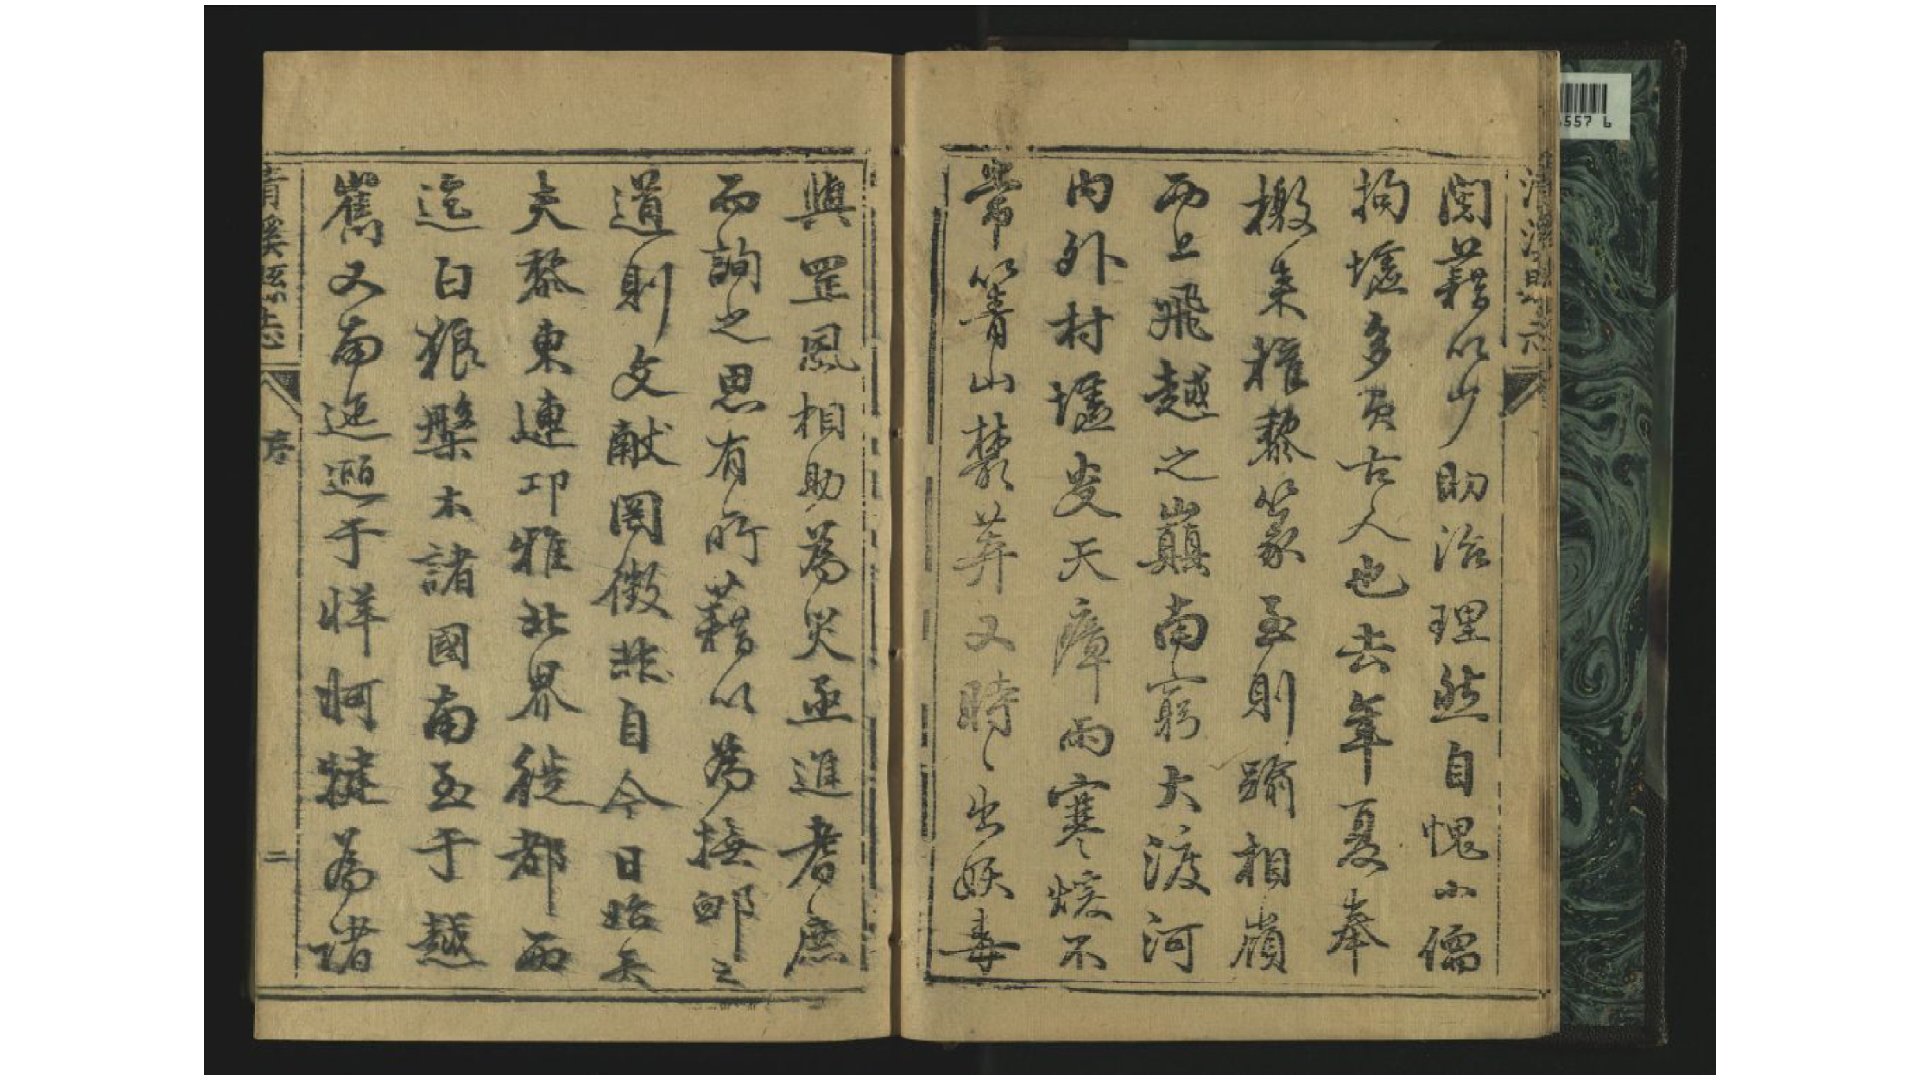 清溪縣志
閱藉以少助治理然自愧小儒
拘墟多負古人也去年夏奉
檄來權黎篆至則踰相嶺
而上飛越之巔南窮大渡河
內外村墟蛮天瘴雨寒燠不
常箐山叢莽又時〻出妖毒
與罡風相助為災亟進耆庶
而詢之思有所藉以為撫郵之
道則文獻罔徵非自今日始矣
夫黎東連邛雅北界徙都西
迄白狼槃木諸國南至于越
嶲又南迤邐于牂牁犍為諸
青溪縣志
序
二
557 6